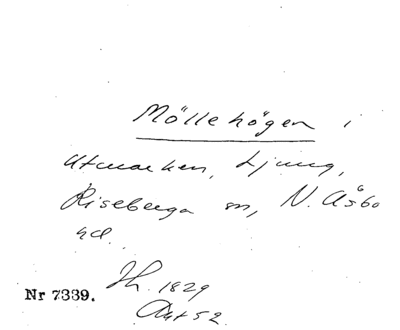 Möllehögen i
Utmarken, Ljung,
Riseberga sn, N. Åsbo
hd.
Jh. 1829
Nr 7339.
Akt 52